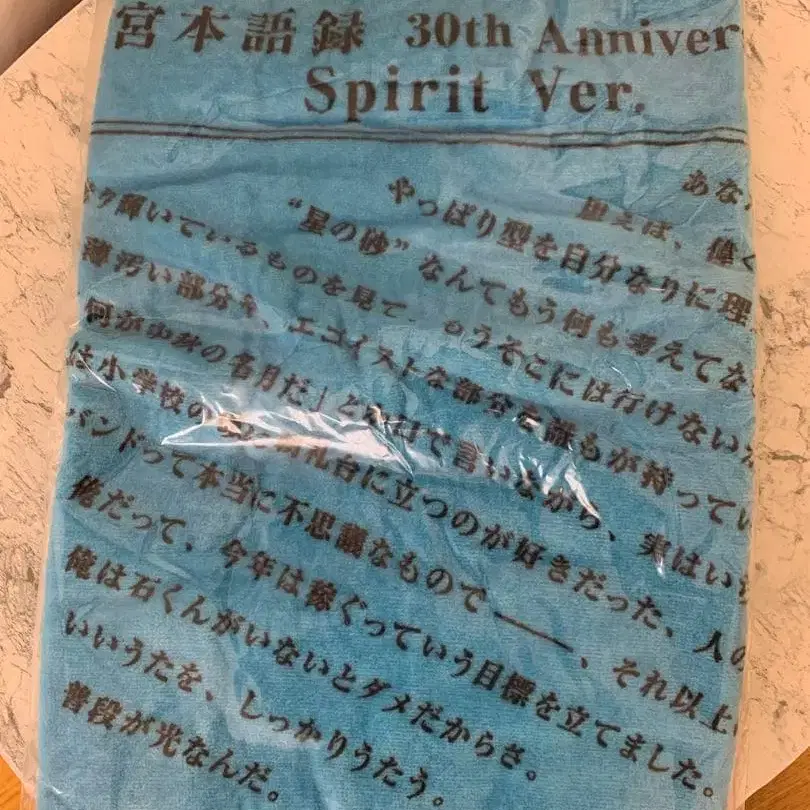 宮本語録 30th Anniver
Spirit Ver.
あな
偉く
やっぱり型を自分なりに理
“星の砂”なんてもう何も考えてな
輝いているものを見て、もうそこには行けない
薄汚い部分や、エゴイストな部分を誰もが持ってい
名月だ」と で言いながら、実はい
は小学校の 台に立つのが好きだった、人の
バンドって本当に不思議なもので――、それ以上
俺だって、今年は稼ぐっていう目標を立てました。
俺は石くんがいないとダメだからさ。
いいうたを、しっかりうたう。
普段が光なんだ。